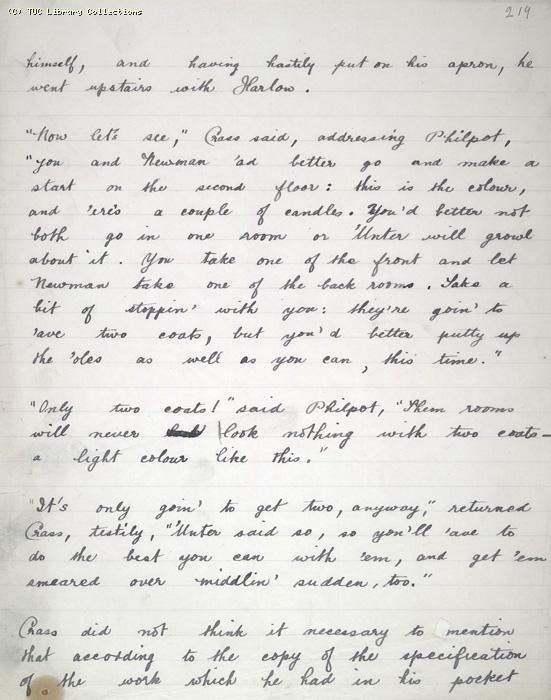 (C) TUC Library Collections
219
himself, and having hastily put on his apron, he
went upstairs with Harlow.
"Now let's see," Crass said, addressing Philpot,
"you and Newman 'ad better go and make a
start on the second floor: this is the colour,
and 'ere's a couple of candles. You'd better not
both go in one room or 'Unter will growl
about it. You take one of the front and let
Newman take one of the back rooms. Take a
bit of stoppin' with you: they're goin' to
'ave two coats, but you'd better putty up
the 'oles as well as you can, this time."
"Only two coats!" said Philpot, "Them rooms
will never look nothing with two coats—
a light colour like this."
"It's only goin' to get two, anyway," returned
Crass, testily, "'Unter said so, so you'll 'ave to
do the best you can with 'em, and get 'em
smeared over middlin' sudden, too."
Crass did not think it necessary to mention
that according to the copy of the specification
of the work which he had in his pocket